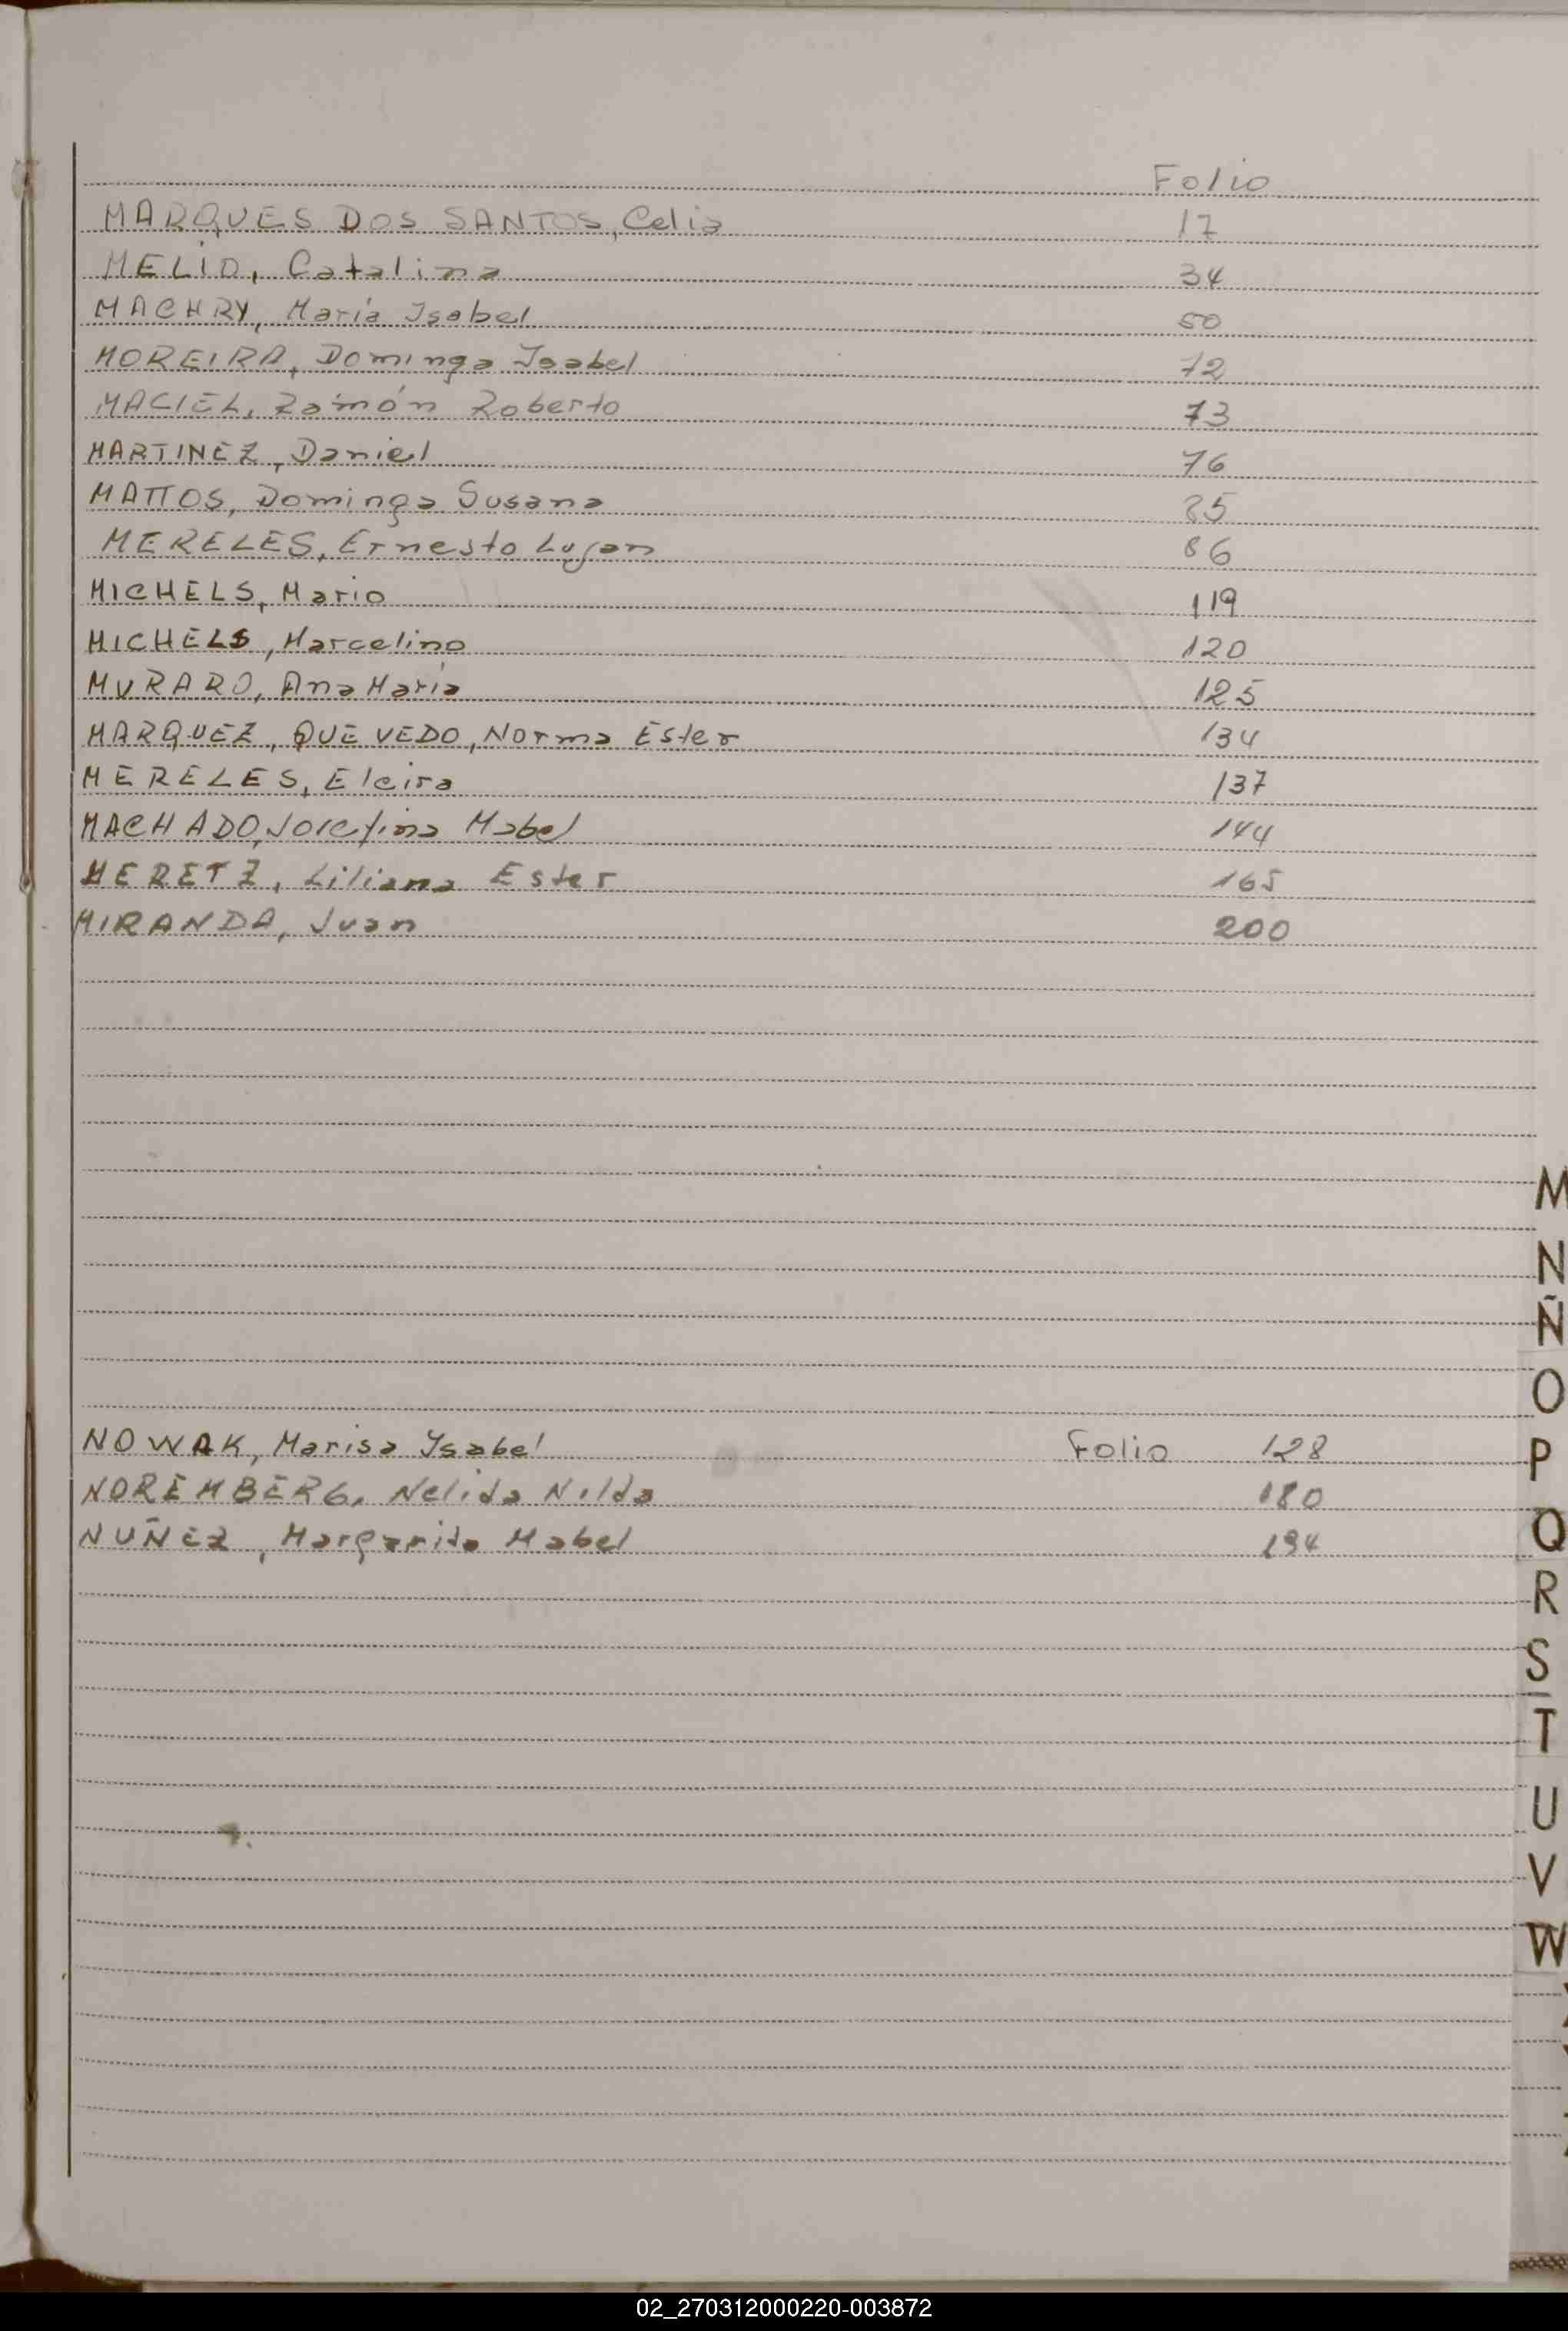 Folio
MARQUES DOS SANTOS, Celia 17
MELIO, Catalina 34
MACHRY, María Isabel 50
MOREIRA, Dominga Isabel 72
MACIEL, Ramón Roberto 73
MARTINEZ, Daniel 76
MATTOS, Dominga Susana 85
MERELES, Ernesto Lujan 86
MICHELS, Mario 119
MICHELS, Marcelino 120
MURARO, Ana María 125
MARQUEZ, QUEVEDO, Norma Ester 134
MERELES, Elcira 137
MACHADO, Josefina Mabel 144
MERETZ, Liliana Ester 165
MIRANDA, Juan 200
NOWAK, Marisa Ysabel Folio 128
NOREMBERG, Nelida Nilda 180
NUÑEZ, Margarita Mabel 194
M
N
Ñ
O
P
Q
R
S
T
U
V
W
02_270312000220-003872